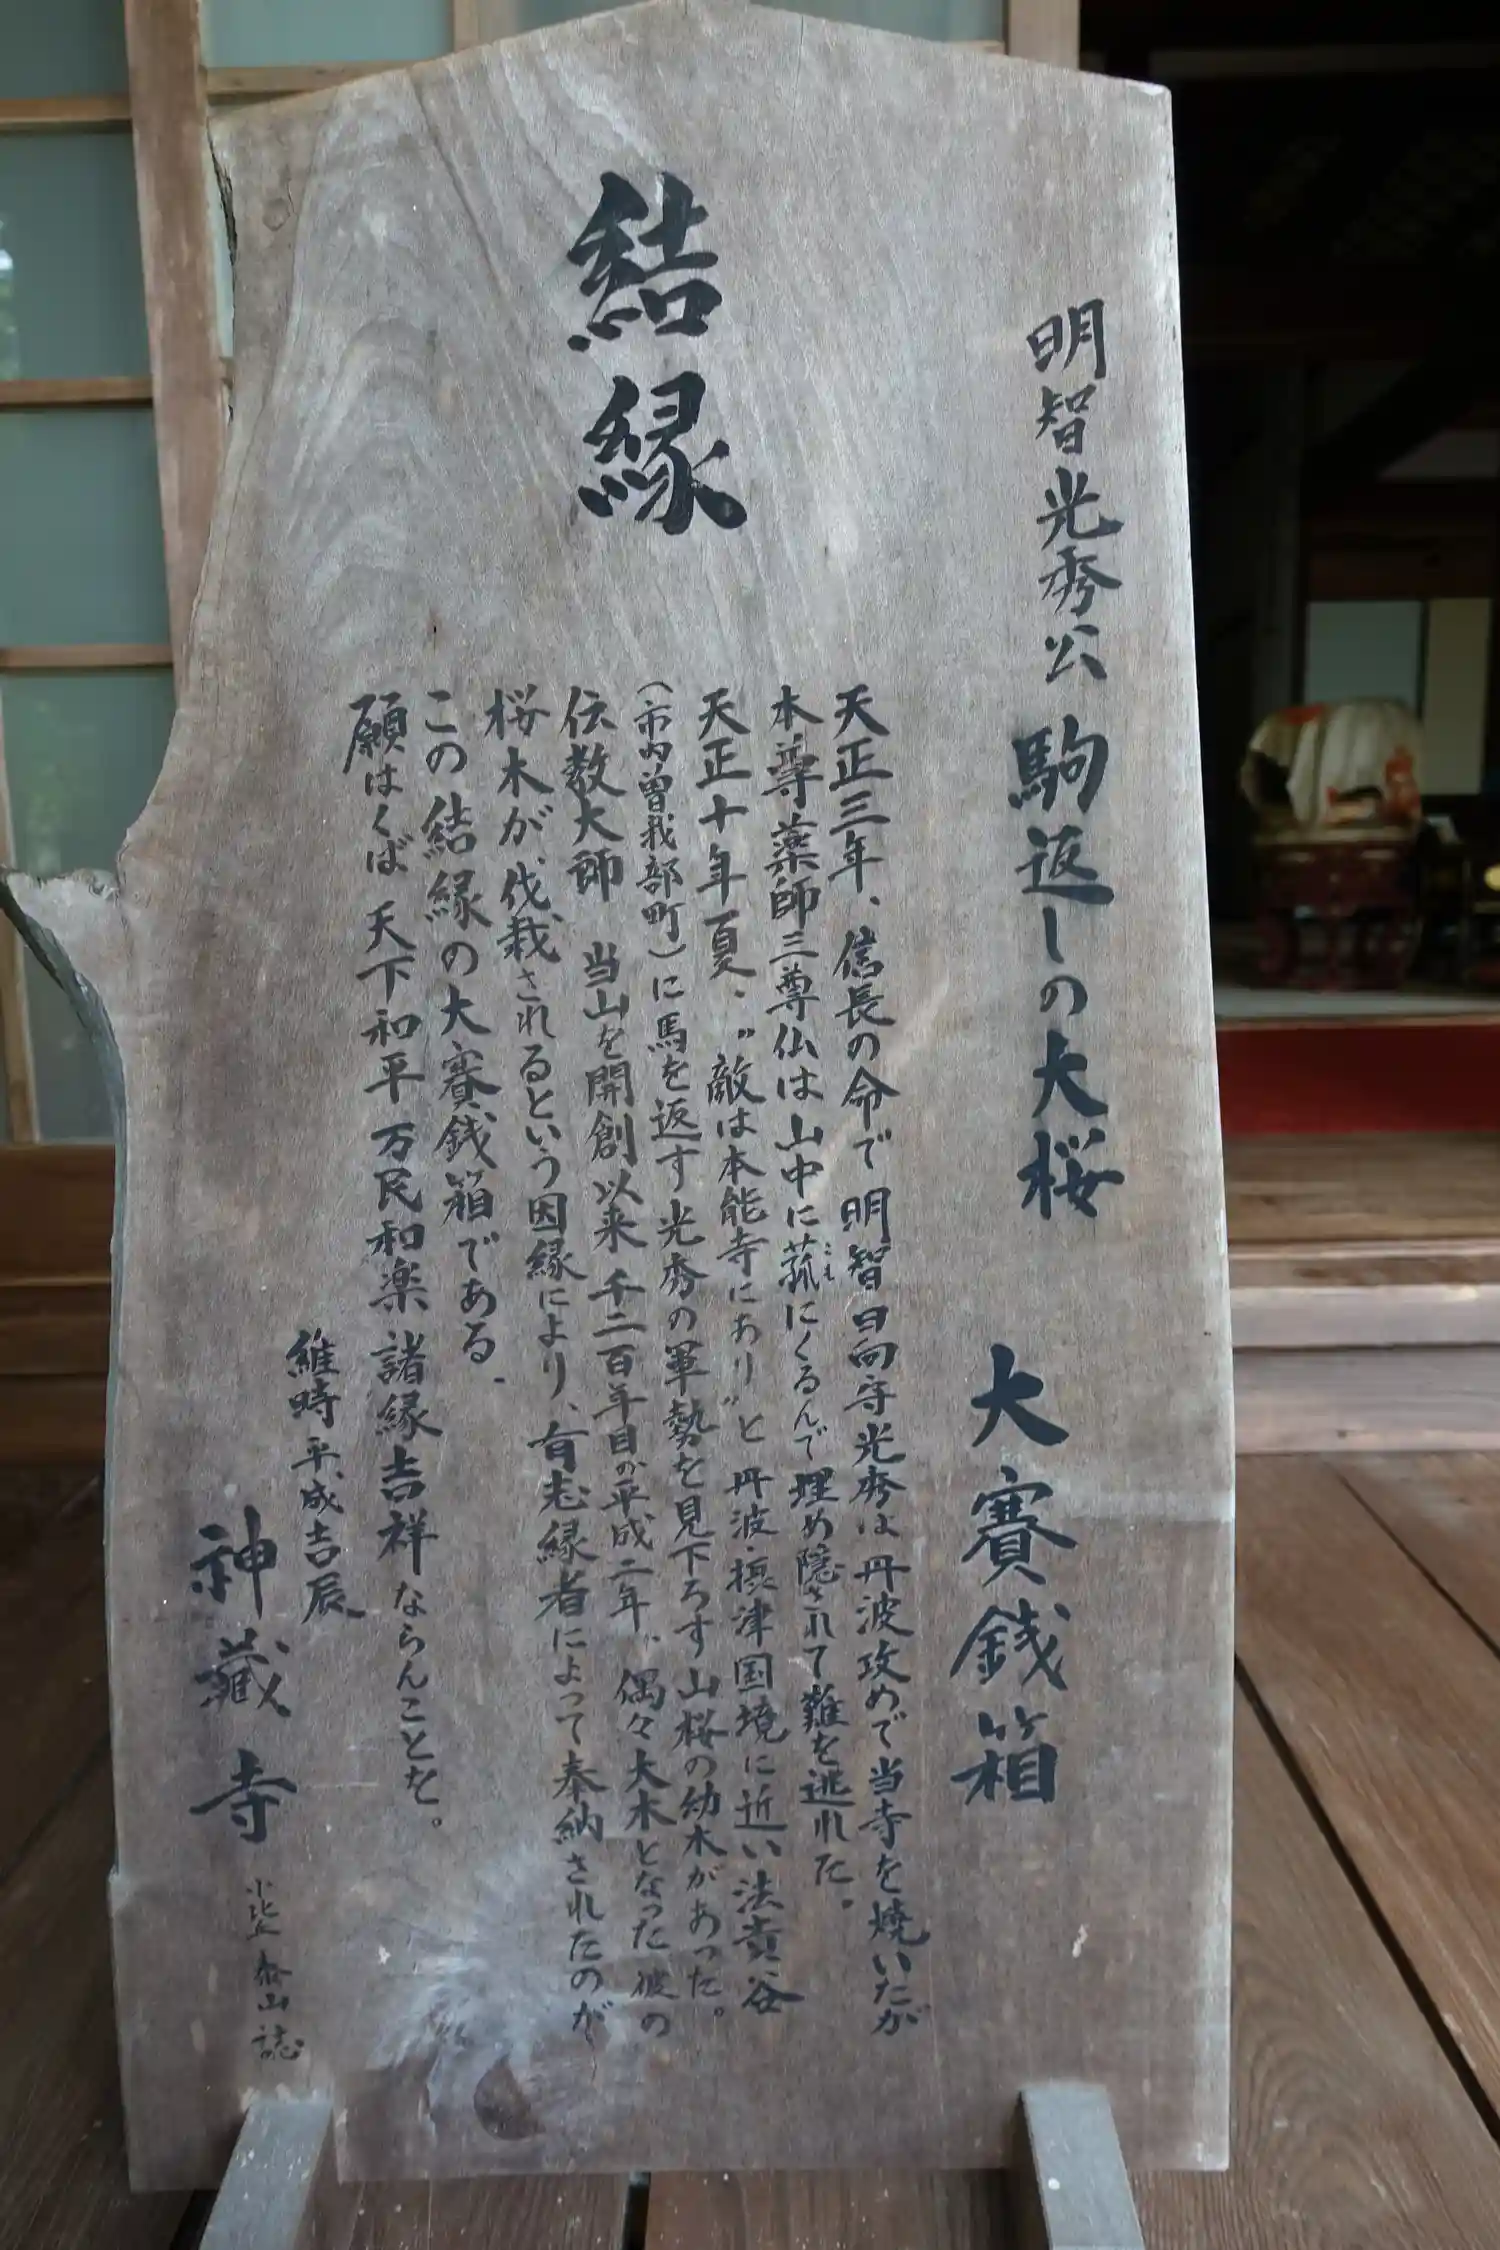 明智光秀公 駒返しの大桜 大賽銭箱
結縁
天正三年、信長の命で明智日向守光秀は丹波攻めで当寺を焼いたが
本尊薬師三尊仏は山中に菰にくるんで埋め隠されて難を逃れた。
こも
天正十年夏、〝敵は本能寺にあり〟と丹波・摂津国境に近い法貴谷
(市内曽我部町)に馬を返す光秀の軍勢を見下ろす山桜の幼木があった。
伝教大師 当山を開創以来千二百年目が平成二年。偶々大木となった彼の
桜木が、伐栽されるという因縁により、有志縁者によって奉納されたのが
この結縁の大賽銭箱である.
願はくば 天下和平 万民和楽 諸縁吉祥ならんことを。
維時 平成吉辰
神蔵寺 小比丘 泰山 誌